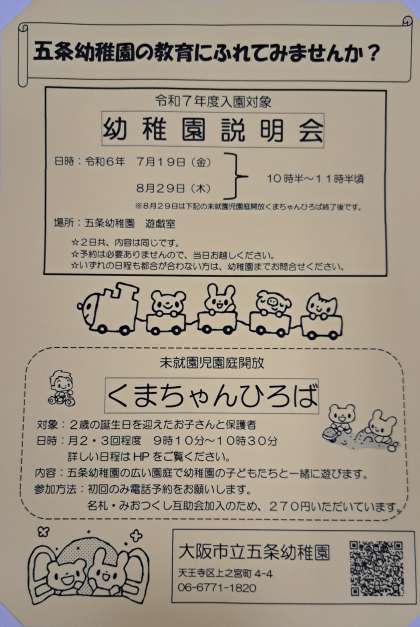 五条幼稚園の教育にふれてみませんか？
令和7年度入園対象
幼稚園説明会
日時：令和6年　7月19日（金）
8月29日（木）
10時半～11時半頃
※8月29日は下記の未就園児園庭開放くまちゃんひろば終了後です。
場所：五条幼稚園　遊戯室
☆2日共、内容は同じです。
☆予約は必要ありませんので、当日お越しください。
☆いずれの日程も都合が合わない方は、幼稚園までお問合せください。
未就園児園庭開放
くまちゃんひろば
対象：2歳の誕生日を迎えたお子さんと保護者
日時：月2・3回程度　9時10分～10時30分
詳しい日程はHPをご覧ください。
内容：五条幼稚園の広い園庭で幼稚園の子どもたちと一緒に遊びます。
参加方法：初回のみ電話予約をお願いします。
名札・みおつくし互助会加入のため、270円いただいています。
大阪市立五条幼稚園
天王寺区上之宮町4-4
06-6771-1820